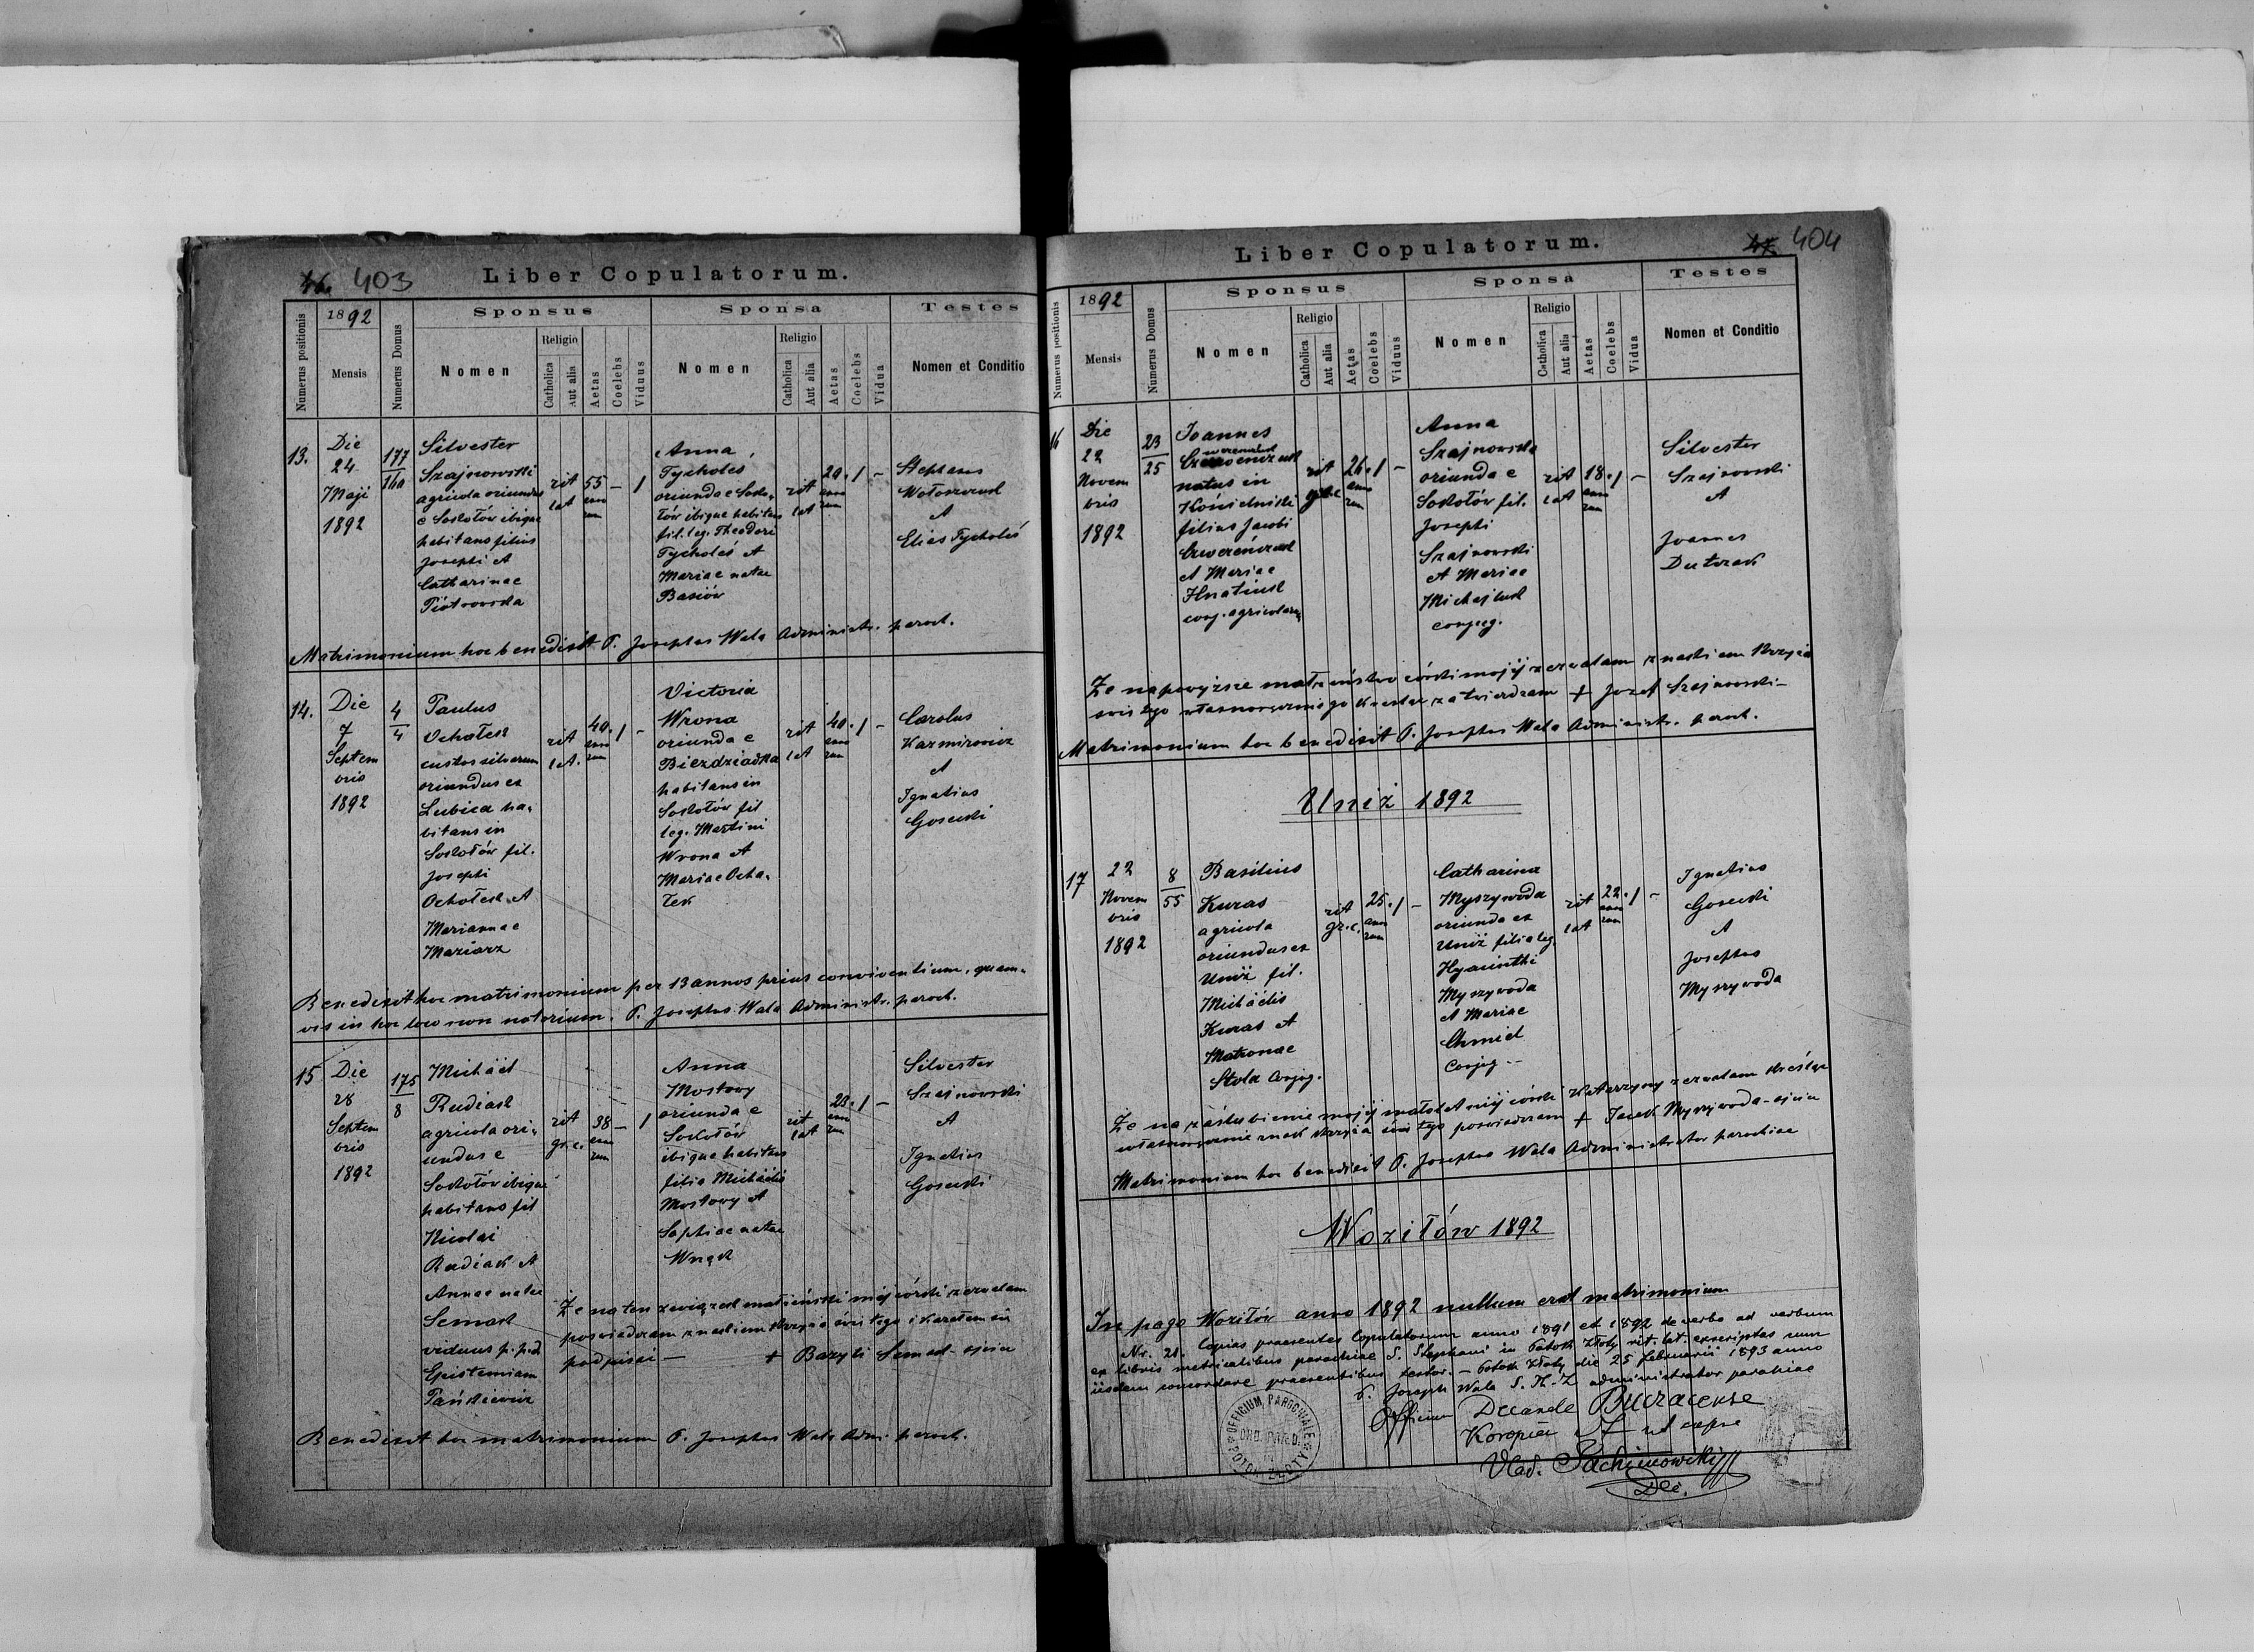 403
Liber Copulatorum.
Numerus positionis
1892
Mensis
Numerus Domus
Sponsus
Nomen
Religio
Catholica
Aut alia
Aetas
Coelebs
Viduus
Sponsa
Nomen
Religio
Catholica
Aut alia
Aetas
Coelebs
Vidua
Testes
Nomen et Conditio
13.
Die
24
Maji
1892
177
160
Silvester
Szajnowski
agricola oriundus
e Sokołów ibique
habitans filius
Josephi et
Catharinae
Piotrowska
rit
lat
55
anno
rum
—
1
Anna
Tycholes
oriunda e Soko-
łów ibique habitans
fil. leg. Theodori
Tycholes et
Mariae natae
Basiów
rit
lat
20.
anno
rum
1
—
Stephans
Wołoszczuk
et
Elias Tycholes
Matrimonium hoc benedixit P. Josephus Wala Administr. paroch.
14.
Die
7
Septem
bris
1892
4
4
Paulus
Ochołek
custos silvarum
oriundus ex
Lubica ha-
bitans in
Sokołów fil.
Josephi
Ochołek et
Mariannae
Maziarz
rit
lat.
40.
anno
rum
1
-
Victoria
Wrona
oriunda e
Bierdziadka
habitans in
Sokołów fil
leg. Martini
Wrona et
Mariae Ocha-
łek
rit
lat
40.
anno
rum
1
-
Carolus
Kazmirowicz
et
Ignatius
Gosecki
Benedixit hoc matrimonium per 13 annos prius conviventium, quam-
vis in hoc loco non notorium. P. Josephus Wala Administr. paroch.
15
Die
28
Septem
bris
1892
175
8
Michäel
Rudiak
agricola ori-
undus e
Sokołów ibique
habitans fil
Nicolai
Rudiak et
Annae natae
Semak
viduus p. p.d.
Epistemiam
Pańkiewicz
rit
gr.c.
38
anno
rum
—
1
Anna
Mostowy
oriunda e
Sokołów
ibique habitans
filia Michäelis
Mostowy et
Sophiae natae
Wnęk
rit
lat
23.
anno
rum
1
—
Silvester
Szajnowski
et
Ignatius
Gosecki
Że na ten związek małżeński mej córki zezwalam
poświadczam znakiem krzyża świętego i kazałem się
podpisać — + Bazyli Semak - ojciec
Benedixit hoc matrimonium P. Josephus Wala Adm. paroch.
404
Liber Copulatorum.
Numerus positionis
1892
Mensis
Numerus Domus
Sponsus
Nomen
Religio
Catholica
Aut alia
Aetas
Coelebs
Viduus
Sponsa
Nomen
Religio
Catholica
Aut alia
Aetas
Coelebs
Vidua
Testes
Nomen et Conditio
16
Die
22
Novem
bris
1892
23
25
Joannes
natus in
Kościelniki
filius Jacobi
et Mariae
Hnatiuk
conj. agricolarum
rit
gr.c
26.
anno
rum
1
—
Anna
Szajnowska
oriunda e
Sokołów fil.
Josephi
Szajnowski
et Mariae
Michajluk
conjug.
rit
lat
18.
anno
rum
1
—
Silvester
Szajnowski
et
Joannes
Dutczak
Że na powyższe małżeństwo córki mojéj zezwalam znakiem krzyża
świętego własnoręcznie go kreśląc zatwierdzam + Józef Szajnowski -
Matrimonium hoc benedixit P. Josephus Wala Administr. paroch.
Uniż 1892
17
22
Novem
bris
1892
8
55
Basilius
Kuras
agricola
oriundus ex
Uniż fil.
Michäelis
Kuras et
Matronae
Stola Conjug.
rit
gr.c.
25.
anno
rum
1
—
Catharina
Myszywoda
oriunda ex
Uniż filia leg.
Hyacinthi
Myszywoda
et Mariae
Chmiel
Conjug --
rit
lat
22.
anno
rum
1
—
Ignatius
Gosecki
et
Josephus
Myszywoda
Że na zaślubienie mojéj małoletniéj córki Katarzyny zezwalam kreśląc
własnoręcznie znak krzyża świętego poświadczam + Jacek Myszywoda - ojciec
Matrimonium hoc benedixit P. Josephus Wala Administrator parochiae
Woziłów 1892
In pago Woziłów anno 1892 nullum erat matrimonium
Nr. 21. Copias praesentes Copulatorum anno 1891 et 1892 de verbo ad verbum
ex libris metricalibus parochiae S. Stephani in Potok Złoty rit. lat. exscriptas cum
iisdem concordare praesentibus testor. — Potok Złoty die 25 februarii 1893 anno
P. Joseph Wala administrator parochiae
Officium Decanale Buczacense
Koropiec ut supra
Vlad. Dec.
OFFICIUM PAROCHIALE
POTOK ZŁOTY